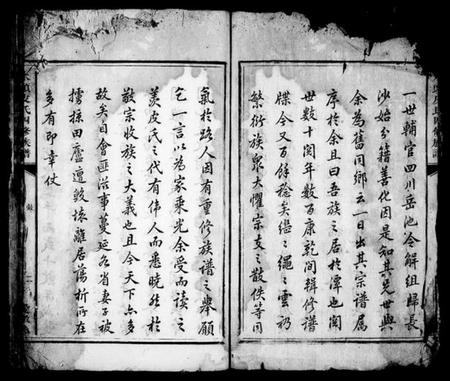 一世輔官四川岳池令解組歸長
沙始分籍善化因是知其先世與
余為舊同鄉云一日出其宗譜属
序於余且曰吾族之居於潭也閲
世数十閲年数百康乾間輯修譜
牒今又百餘稔矣繩之雲礽
繁衍族衆大懼宗支之散佚等同
氣於路人因有重修族譜之舉願
乞一言以為家乘光余受而讀之
羡皮氏之代有偉人而悉曉然於
敬宗收族之大義也且今天下亦多
故矣自會匪滋事蔓延各省妻子被
擄掠田廬遭毀壞離居蕩析所在
多有即幸仗